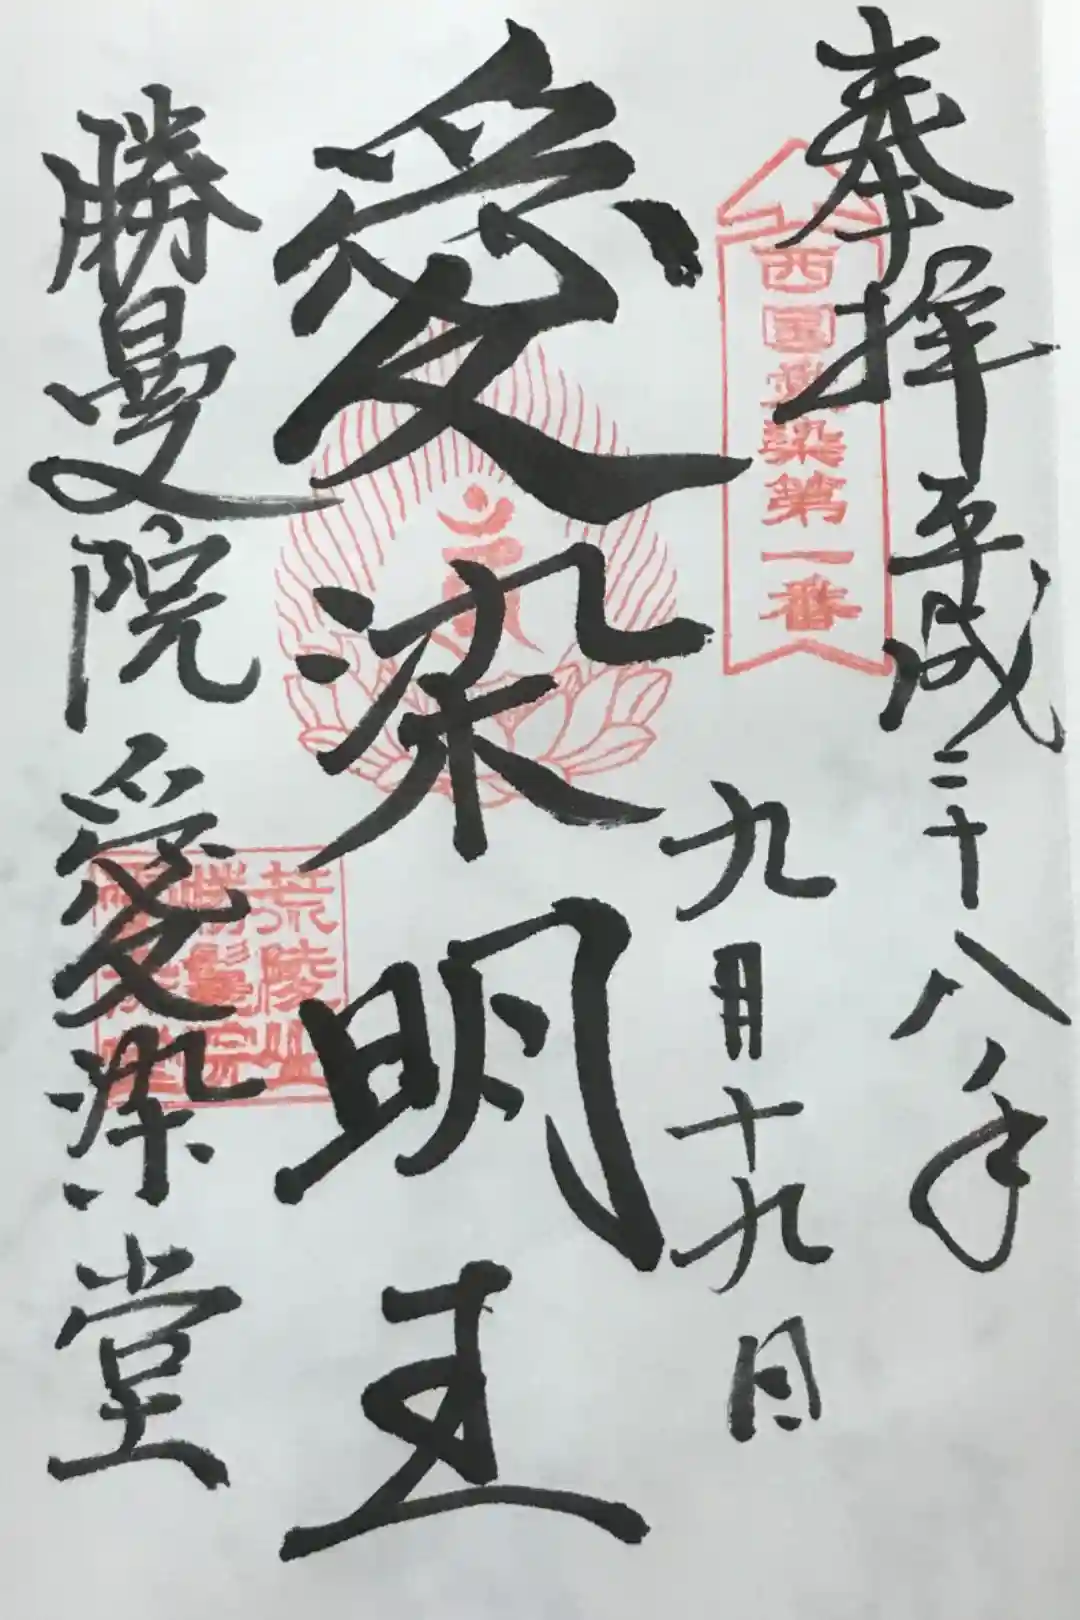 奉拝平成二十八年
九月十九日
西國愛染第一番
愛染明王
勝曼院愛染堂
荒陵山
勝鬘院
愛染堂